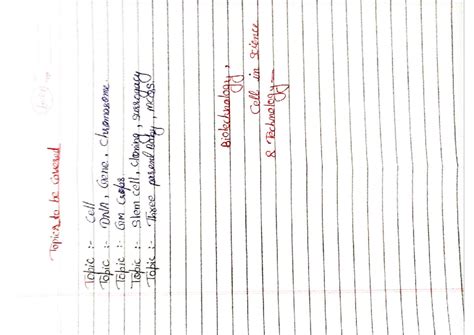 Topics to be covered
Topic :- Cell
Topic :- DNA, Gene, Chromosome
Topic :- GM Crops
Topic :- Stem Cell, Cloning, surrogacy
Topic :- Three parent baby, MCQs.
Biotechnology,
Cell in Science
& Technology